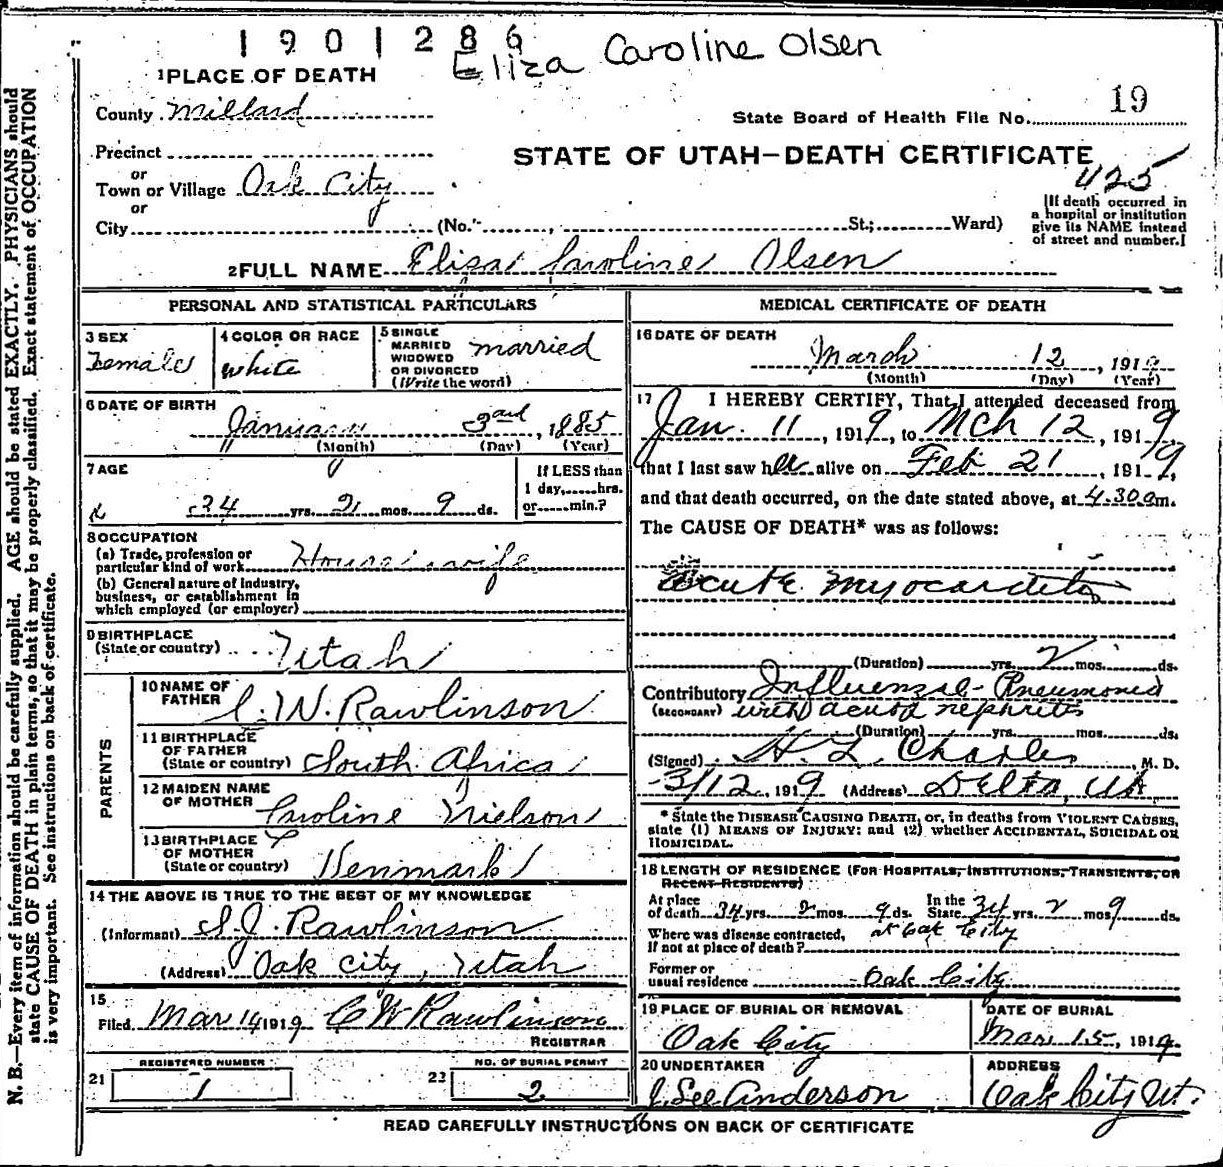 1901286
Eliza Caroline Olsen
1 PLACE OF DEATH
County Millard
State Board of Health File No. 19
Precinct
or
Town or Village Oak City
or
City (No. , St.; Ward)
STATE OF UTAH—DEATH CERTIFICATE
425
[If death occurred in
a hospital or institution
give its NAME instead
of street and number.]
2 FULL NAME Eliza Caroline Olsen
PERSONAL AND STATISTICAL PARTICULARS
3 SEX
Female
4 COLOR OR RACE
White
5 SINGLE
MARRIED
WIDOWED
OR DIVORCED
(Write the word)
married
6 DATE OF BIRTH
January 3rd, 1885
(Month) (Day) (Year)
7 AGE
34 yrs. 2 mos. 9 ds.
If LESS than
1 day,......hrs.
or......min.?
8 OCCUPATION
(a) Trade, profession or
particular kind of work Housewife
(b) General nature of industry,
business, or establishment in
which employed (or employer)
9 BIRTHPLACE
(State or country) Utah
PARENTS
10 NAME OF
FATHER C. W. Rawlinson
11 BIRTHPLACE
OF FATHER
(State or country) South Africa
12 MAIDEN NAME
OF MOTHER Caroline Nielson
13 BIRTHPLACE
OF MOTHER
(State or country) Denmark
14 THE ABOVE IS TRUE TO THE BEST OF MY KNOWLEDGE
(Informant) S. J. Rawlinson
(Address) Oak City, Utah
15
Filed Mar 14 1919 C W Rawlinson
REGISTRAR
REGISTERED NUMBER
21 1
NO. OF BURIAL PERMIT
22 2
MEDICAL CERTIFICATE OF DEATH
16 DATE OF DEATH
March 12, 1919
(Month) (Day) (Year)
17 I HEREBY CERTIFY, That I attended deceased from
Jan. 11, 1919, to Mch 12, 1919
that I last saw her alive on Feb 21, 1919,
and that death occurred, on the date stated above, at 4.30 am.
The CAUSE OF DEATH* was as follows:
Acute Myocarditis
(Duration) yrs. 2 mos. ds.
Contributory Influenza-Pneumonia
(SECONDARY) with acute nephritis
(Duration) yrs. mos. ds.
(Signed) H. L. Charles, M. D.
3/12, 1919 (Address) Delta, Ut.
* State the DISEASE CAUSING DEATH, or, in deaths from VIOLENT CAUSES,
state (1) MEANS OF INJURY; and (2) whether ACCIDENTAL, SUICIDAL OR
HOMICIDAL.
18 LENGTH OF RESIDENCE (FOR HOSPITALS, INSTITUTIONS, TRANSIENTS, OR
RECENT RESIDENTS)
At place
of death 34 yrs. 2 mos. 9 ds. In the
State 34 yrs. 2 mos. 9 ds.
Where was disease contracted,
if not at place of death? at Oak City
Former or
usual residence Oak City
19 PLACE OF BURIAL OR REMOVAL
Oak City
DATE OF BURIAL
Mar. 15, 1919.
20 UNDERTAKER
J. Lee Anderson
ADDRESS
Oak City Ut.
READ CAREFULLY INSTRUCTIONS ON BACK OF CERTIFICATE
N. B.—Every item of information should be carefully supplied. AGE should be stated EXACTLY. PHYSICIANS should
state CAUSE OF DEATH in plain terms, so that it may be properly classified. Exact statement of OCCUPATION
is very important. See instructions on back of certificate.